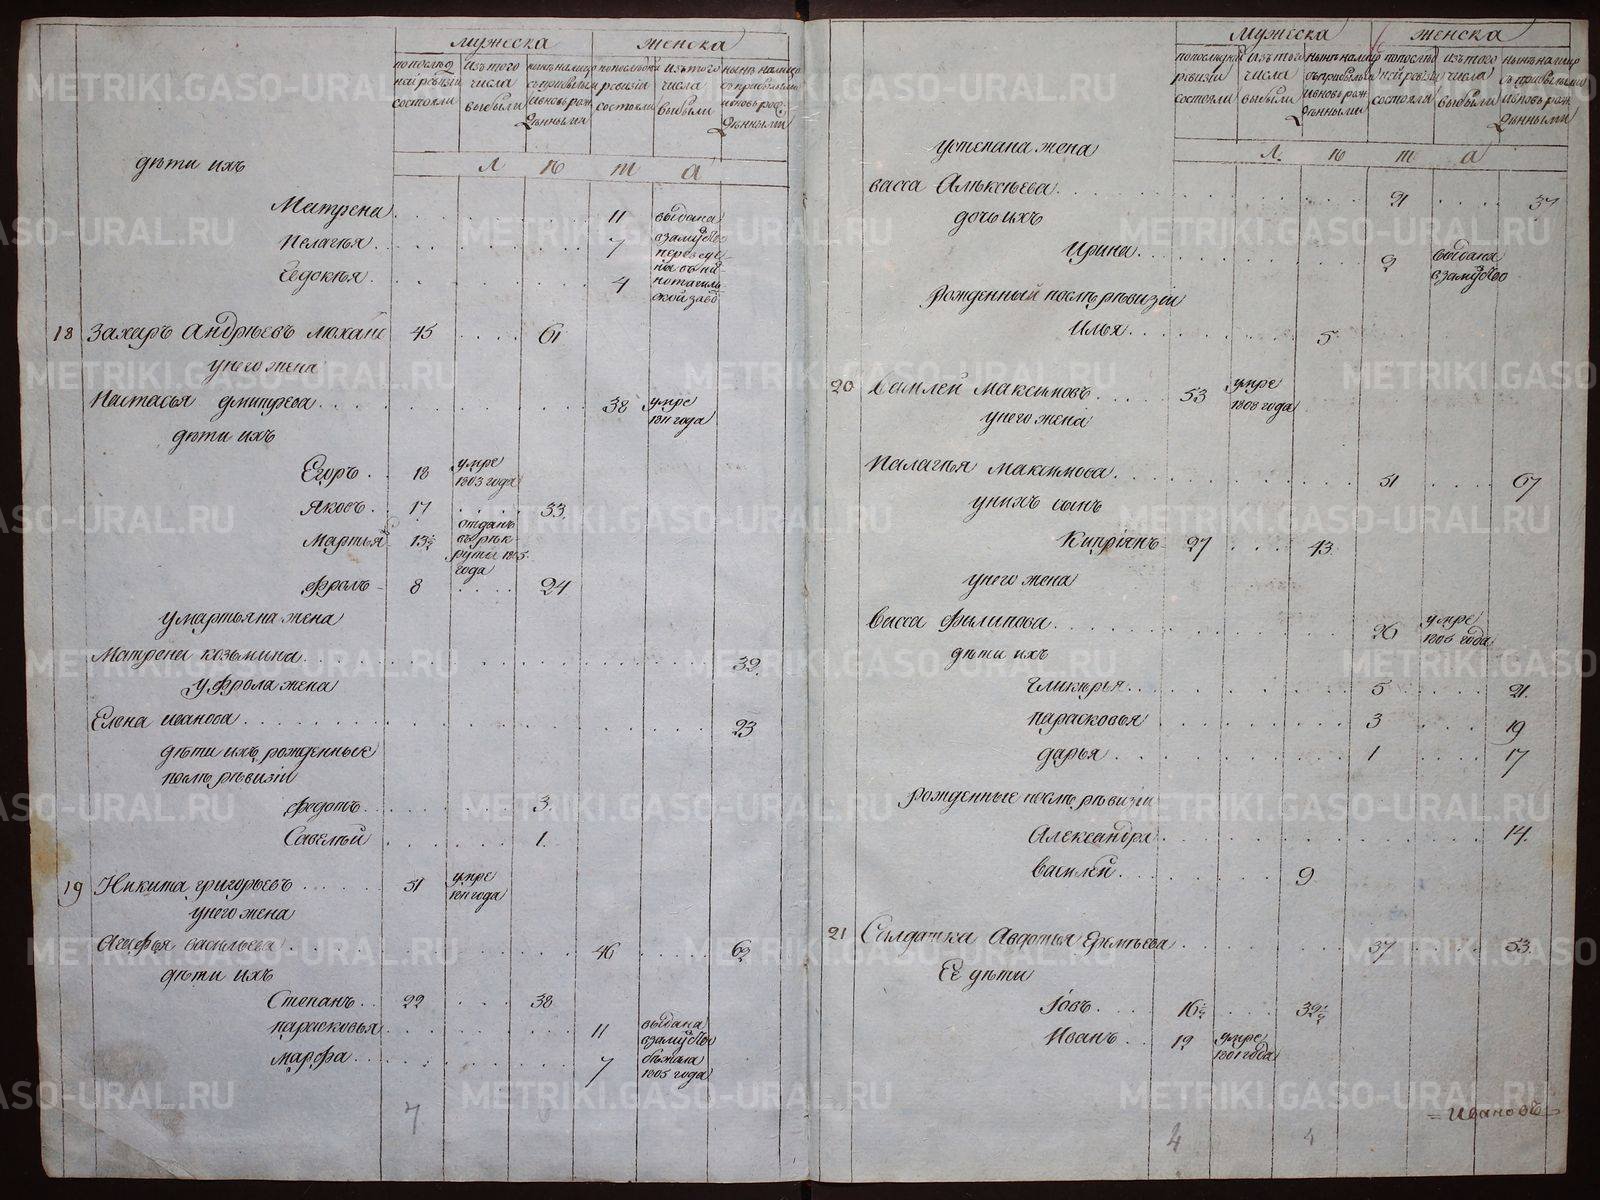 мужеска женска
по послед ней ревизіи состояли
изъ того числа выбыли
нынѣ на лицо съ прибылыми и вновь рож денными
по последней ревизіи состояли
изъ того числа выбыли
нынѣ на лицо съ прибылыми и вновь рож денными
л ѣ т а
дѣти ихъ
Матрена 11 выдана
Пелагѣя 7 взамужъ
Ѳедосья 4
18 Захаръ Андрѣевъ 45 61
у него жена
Настасья Дмитрева 38 умре 1811 года
дѣти ихъ
Егоръ 18 умре 1803 года
Яковъ 17 33
Мартьян 13½ отданъ въ рек руты 1805 года
Фролъ 8 24
у мартьяна жена
Матрена козьмина 32
у фрола жена
Елѣна иванова 23
дѣти ихъ рожденные
послѣ ревизіи
федотъ 3
Савелѣй 1
19 Никита григорьевъ 51 умре 1811 года
у него жена
Агафья васильева 46 62
дѣти ихъ
Степанъ 22 38
парасковья 11 выдана взамужъ
марфа 7 бѣжала 1805 года
мужеска женска
по последней ревизіи состояли
изъ того числа выбыли
нынѣ на лицо съ прибылыми и вновь рож денными
по послед ней ревизіи состояли
изъ того числа выбыли
нынѣ на лицо съ прибылыми и вновь рож денными
л ѣ т а
у степана жена
васса Алѣксѣева 21 37
дочь ихъ
Ирина 2 выдана взамужъ
Рожденный послѣ ревизіи
Илья 5
20 Василей Максимовъ 53 умре 1808 года
у него жена
Палагѣя максимова 51 67
у нихъ сынъ
Кипріянъ 27 43
у него жена
Васса филипова 26 умре 1806 года
дѣти ихъ
гликѣрья 5 21
парасковья 3 19
дарья 1 17
рожденные послѣ ревизіи
Александра 14
василей 9
21 Салдатка Авдотья Ерѳмѣева 37 53
Ее дѣти
Іовъ 16½ 32½
Иванъ 12 умре 1801 года
Ивановъ
7
4 4
METRIKI.GASO-URAL.RU